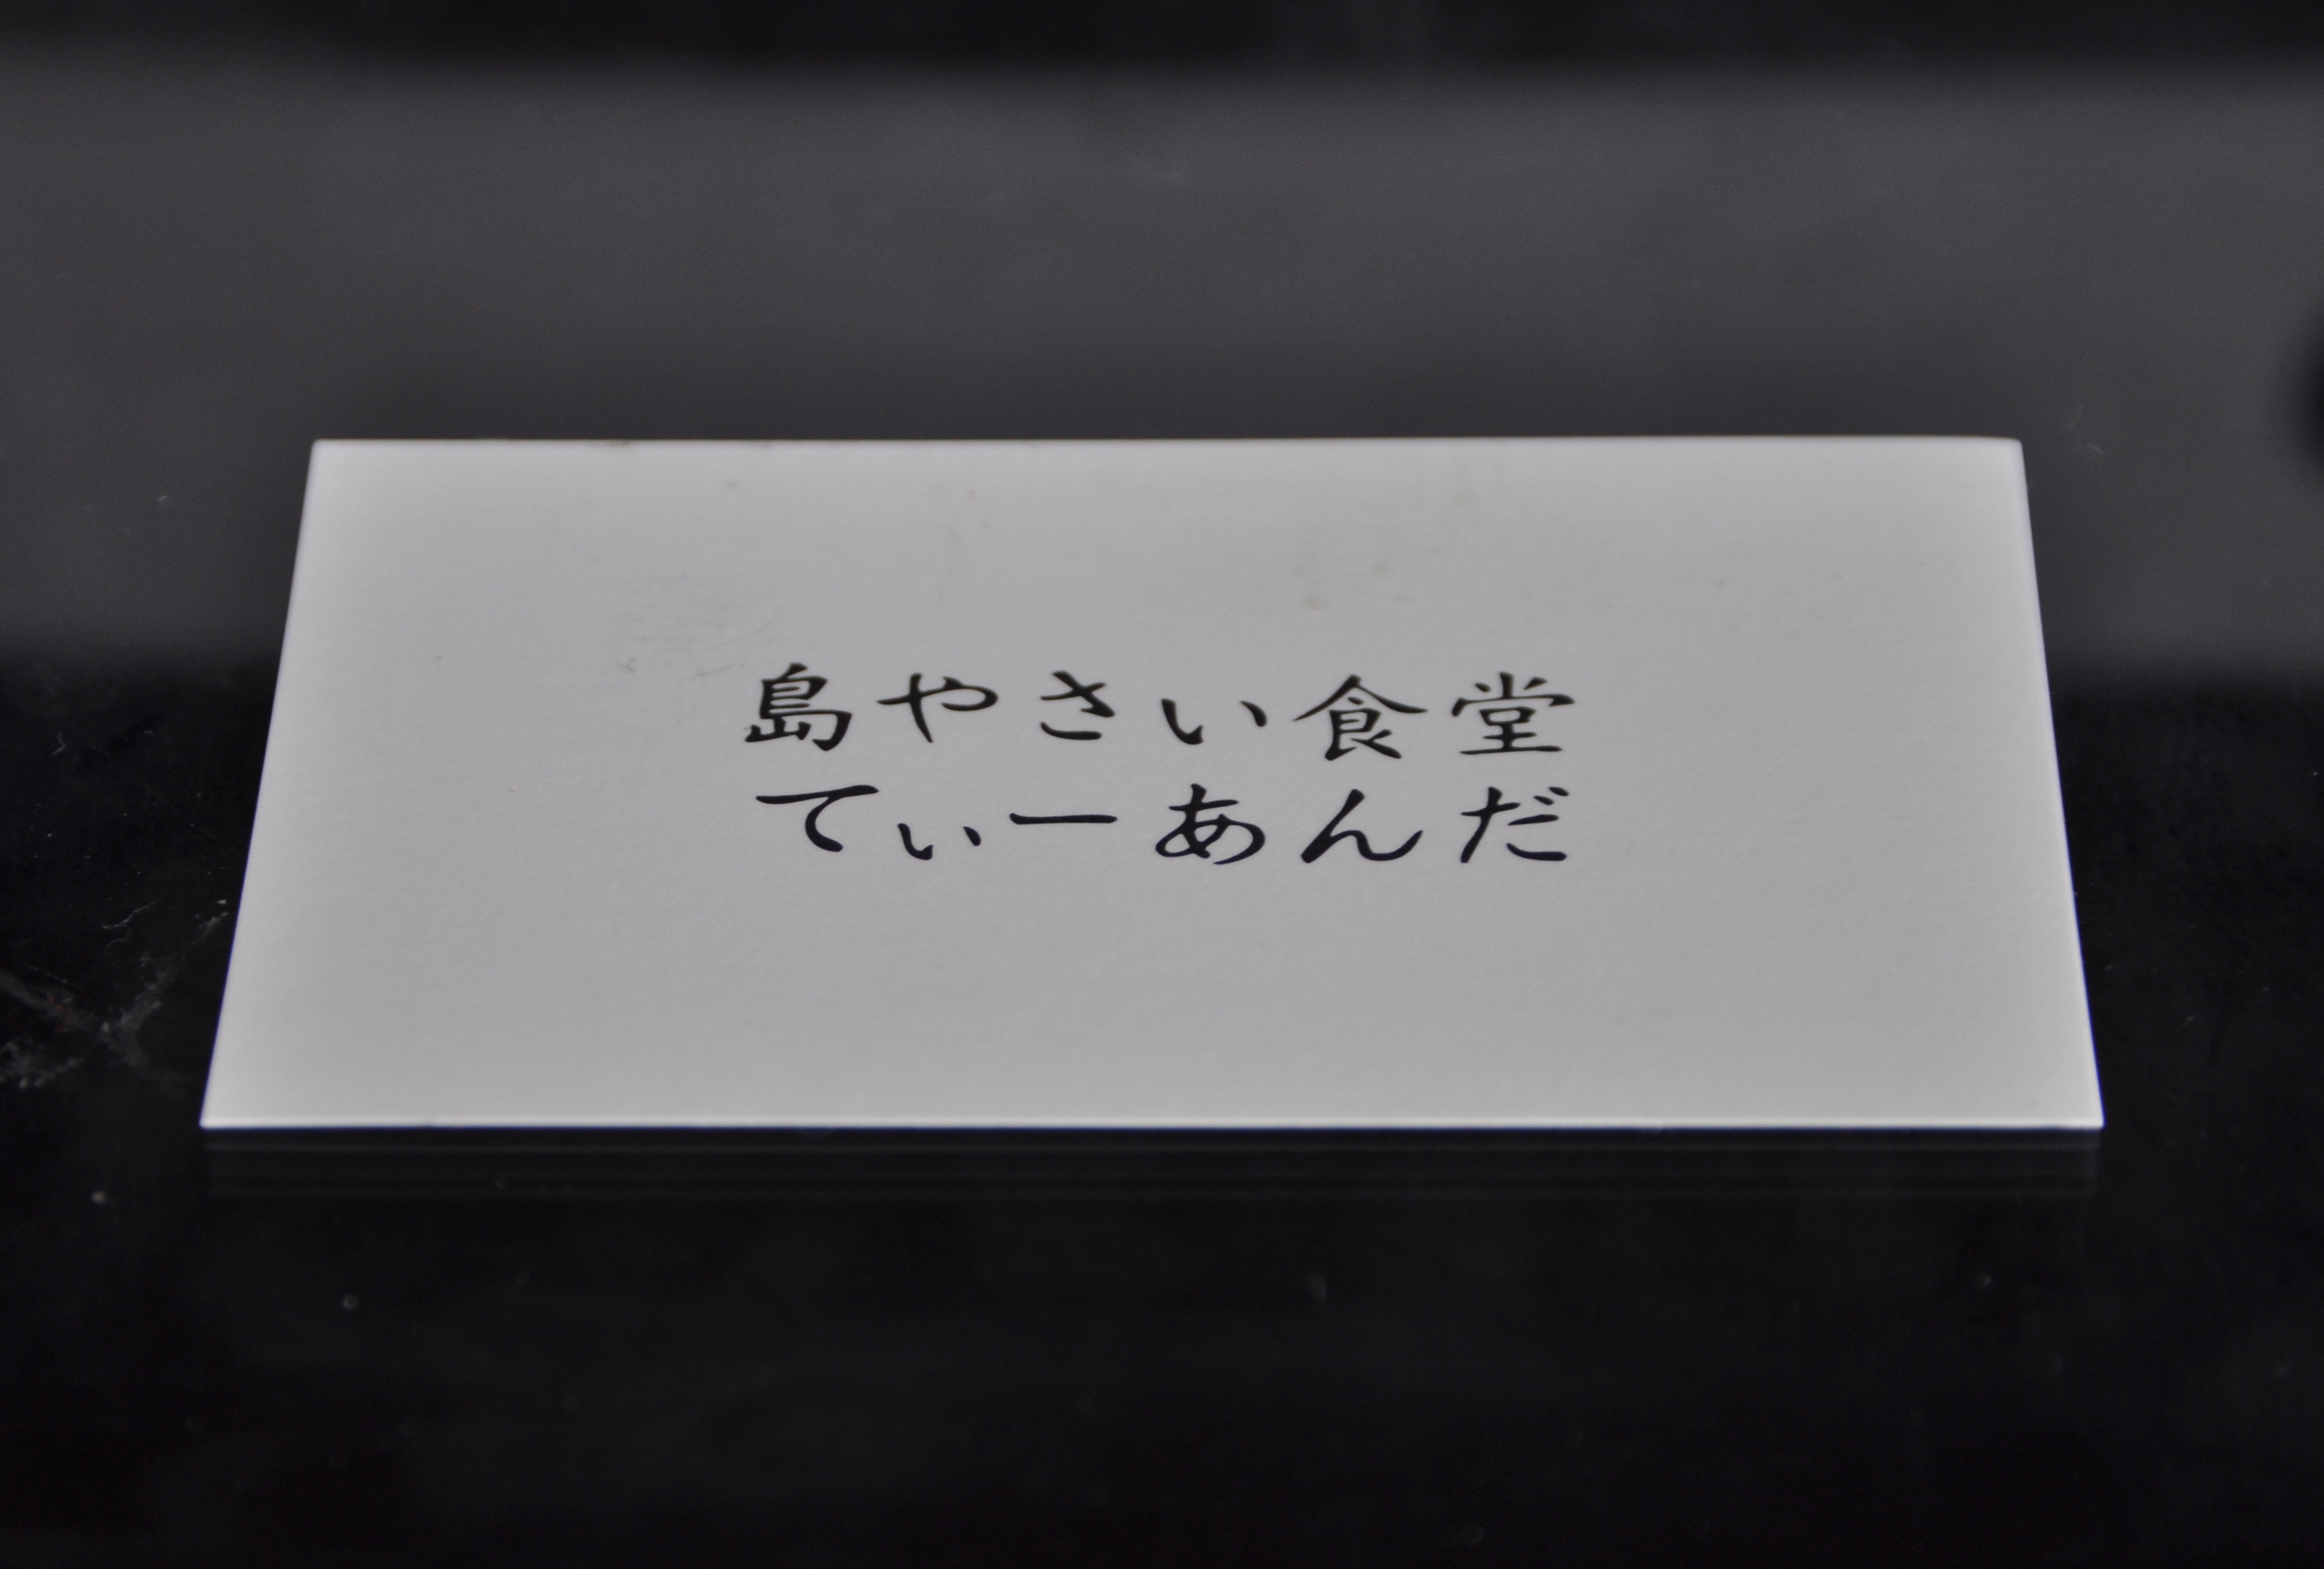 島やさい食堂
てぃーあんだ